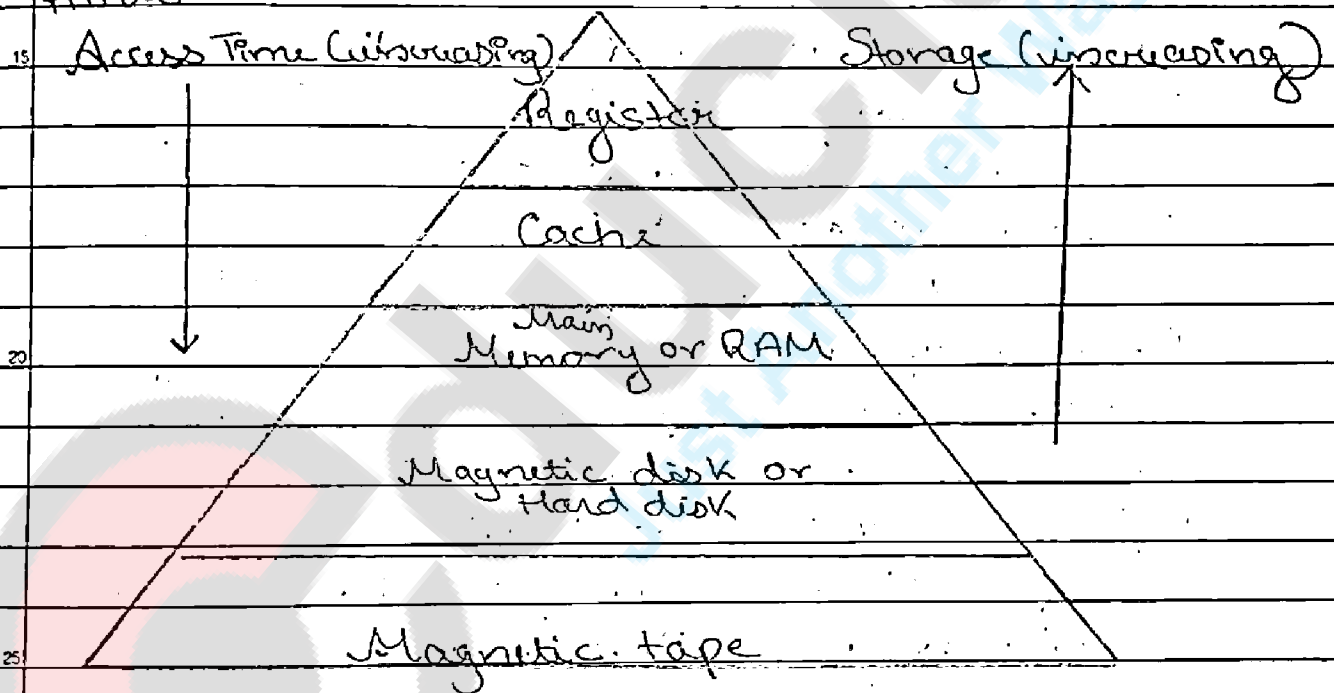 15 Access Time (increasing) Storage (increasing)
Register
Cache
Main
20 Memory or RAM
Magnetic disk or
Hard disk
25 Magnetic tape
Just Another Wa